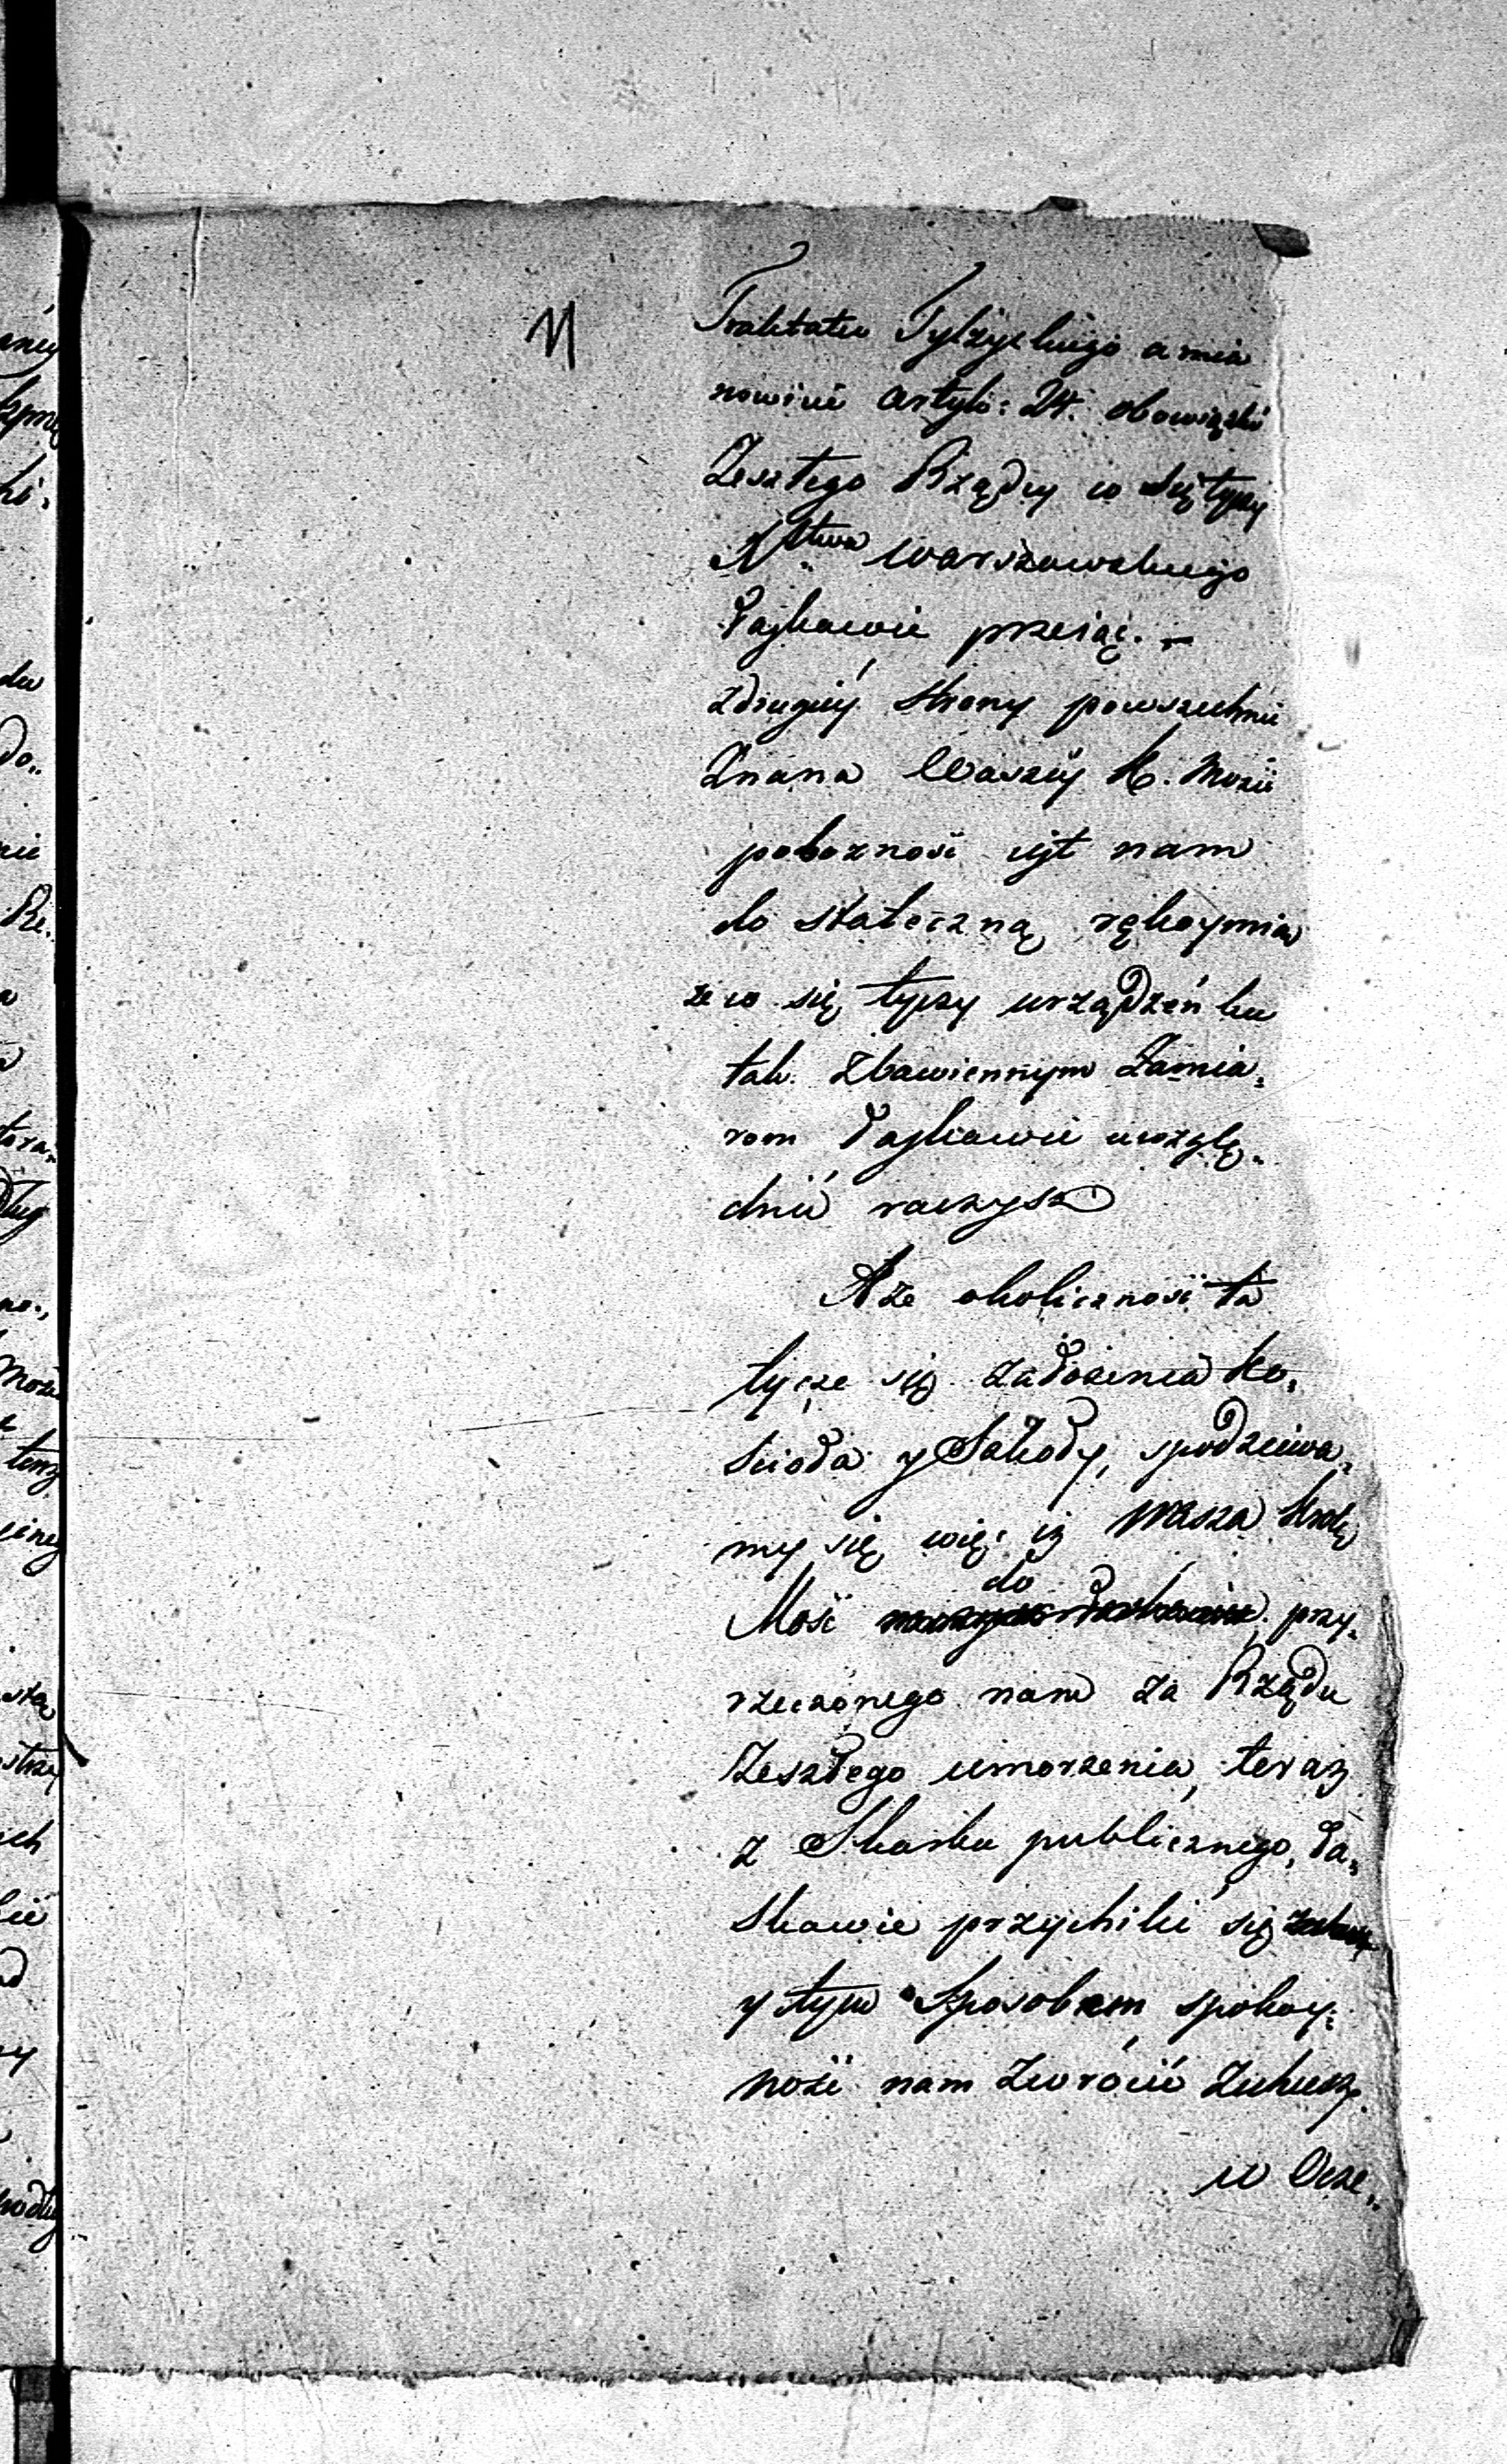 11
Traktatu Tylżyckiego a mia
nowicie Artyk: 24. obowiązki
Zeszłego Rządu co się tyczy
X<sup>stwa</sup> Warszawskiego
łaskawie przeiąć. –
z drugiey strony powszechnie
Znana Waszey K. Mości
pobożność iest nam
do stateczną rękoymia
że co się tyczy urządzeń ku
tak zbawiennym Zamia„
rom łaskawie uwzglę„
dnić raczysz
Aże okoliczność ta
tycze się założenia ko„
ścioła y Szkoły, spodziewa„
my się więc iż Wasza Krolę
Mość do przy„
rzeczonego nam za Rządu
Zeszłego umorzenia, teraz
z Skarbu publicznego, ła„
skawie przychilić się
y tym Sposobem spokoy„
ność nam zwrócić Zechcesz.
w Ocze„